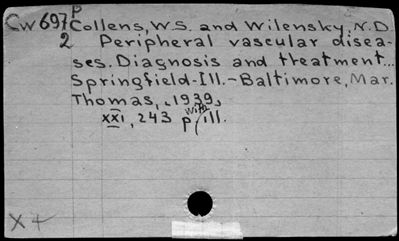 P
Cw 697 Collens, W.S. and Wilensky, N.D.
2 Peripheral vascular disea-
ses. Diagnosis and treatment...
Springfield-Ill.-Baltimore, Mar.
Thomas, 1939,
XXI, 243 p, with ill.
X +